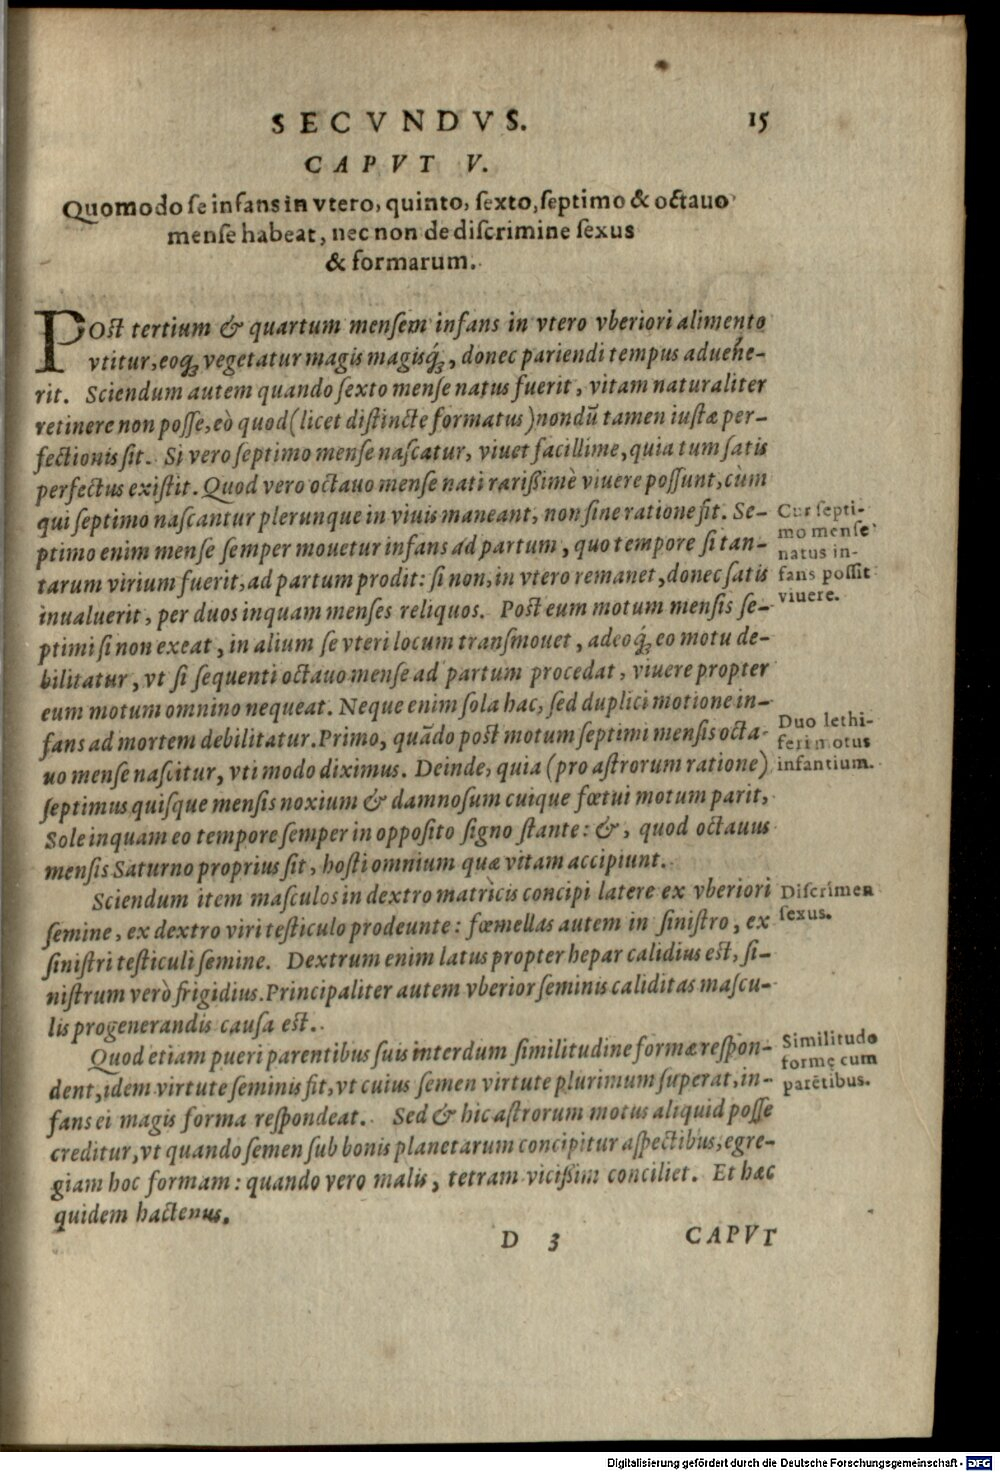 SECVNDVS. 15
CAPVT V.
Quomodo se infans in vtero, quinto, sexto, septimo & octauo
mense habeat, nec non de discrimine sexus
& formarum.
POst tertium & quartum mensem infans in vtero vberiori alimento
vtitur, eoq́; vegetatur magis magisq́;, donec pariendi tempus aduene-
rit. Sciendum autem quando sexto mense natus fuerit, vitam naturaliter
retinere non posse, eò quod (licet distincte formatus) nondũ tamen iustæ per-
fectionis sit. Si vero septimo mense nascatur, viuet facillime, quia tum satis
perfectus existit. Quod vero octauo mense nati rarißimè viuere possunt, cùm
qui septimo nascantur plerunque in viuis maneant, non sine ratione fit. Se-
ptimo enim mense semper mouetur infans ad partum, quo tempore si tan-
tarum virium fuerit, ad partum prodit: si non, in vtero remanet, donec satis
inualuerit, per duos inquam menses reliquos. Post eum motum mensis se-
ptimi si non exeat, in alium se vteri locum transmouet, adeoq́; eo motu de-
bilitatur, vt si sequenti octauo mense ad partum procedat, viuere propter
eum motum omnino nequeat. Neque enim sola hac, sed duplici motione in-
fans ad mortem debilitatur. Primo, quãdo post motum septimi mensis octa-
uo mense nascitur, vti modo diximus. Deinde, quia (pro astrorum ratione)
septimus quisque mensis noxium & damnosum cuique fœtui motum parit,
Sole inquam eo tempore semper in opposito signo stante: &, quod octauus
mensis Saturno proprius sit, hosti omnium quæ vitam accipiunt.
Sciendum item masculos in dextro matricis concipi latere ex vberiori
semine, ex dextro viri testiculo prodeunte: fœmellas autem in sinistro, ex
sinistri testiculi semine. Dextrum enim latus propter hepar calidius est, si-
nistrum verò frigidius. Principaliter autem vberior seminis caliditas mascu-
lis progenerandis causa est.
Quod etiam pueri parentibus suis interdum similitudine formæ respon-
dent, idem virtute seminis fit, vt cuius semen virtute plurimum superat, in-
fans ei magis forma respondeat. Sed & hic astrorum motus aliquid posse
creditur, vt quando semen sub bonis planetarum concipitur aspectibus, egre-
giam hoc formam: quando vero malis, tetram vicißim conciliet. Et hæc
quidem hactenus.
D 3 CAPVT
Cur septi-
mo mense
natus in-
fans possit
viuere.
Duo lethi-
feri motus
infantium.
Discrimen
sexus.
Similitudo
formę cum
parẽtibus.
Digitalisierung gefördert durch die Deutsche Forschungsgemeinschaft - DFG